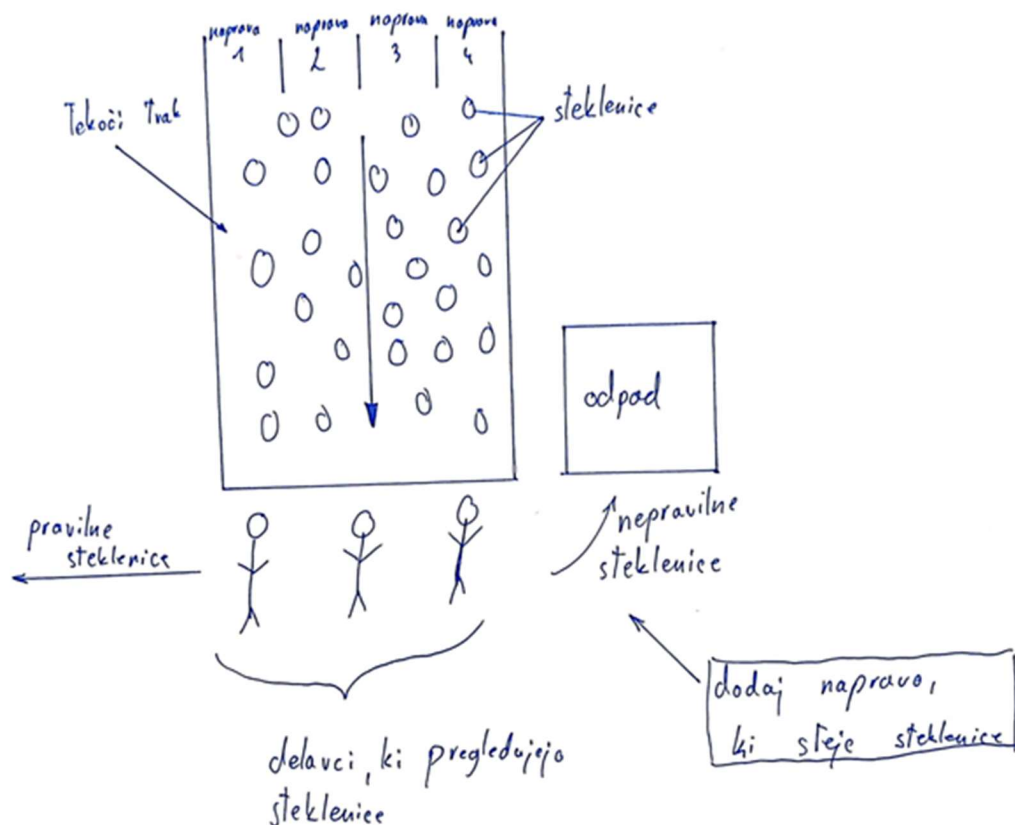 naprava 1
naprava 2
naprava 3
naprava 4
Tekoči trak
steklenice
odpad
pravilne
steklenice
nepravilne
steklenice
dodaj napravo,
ki šteje steklenice
delavci, ki pregledujejo
steklenice